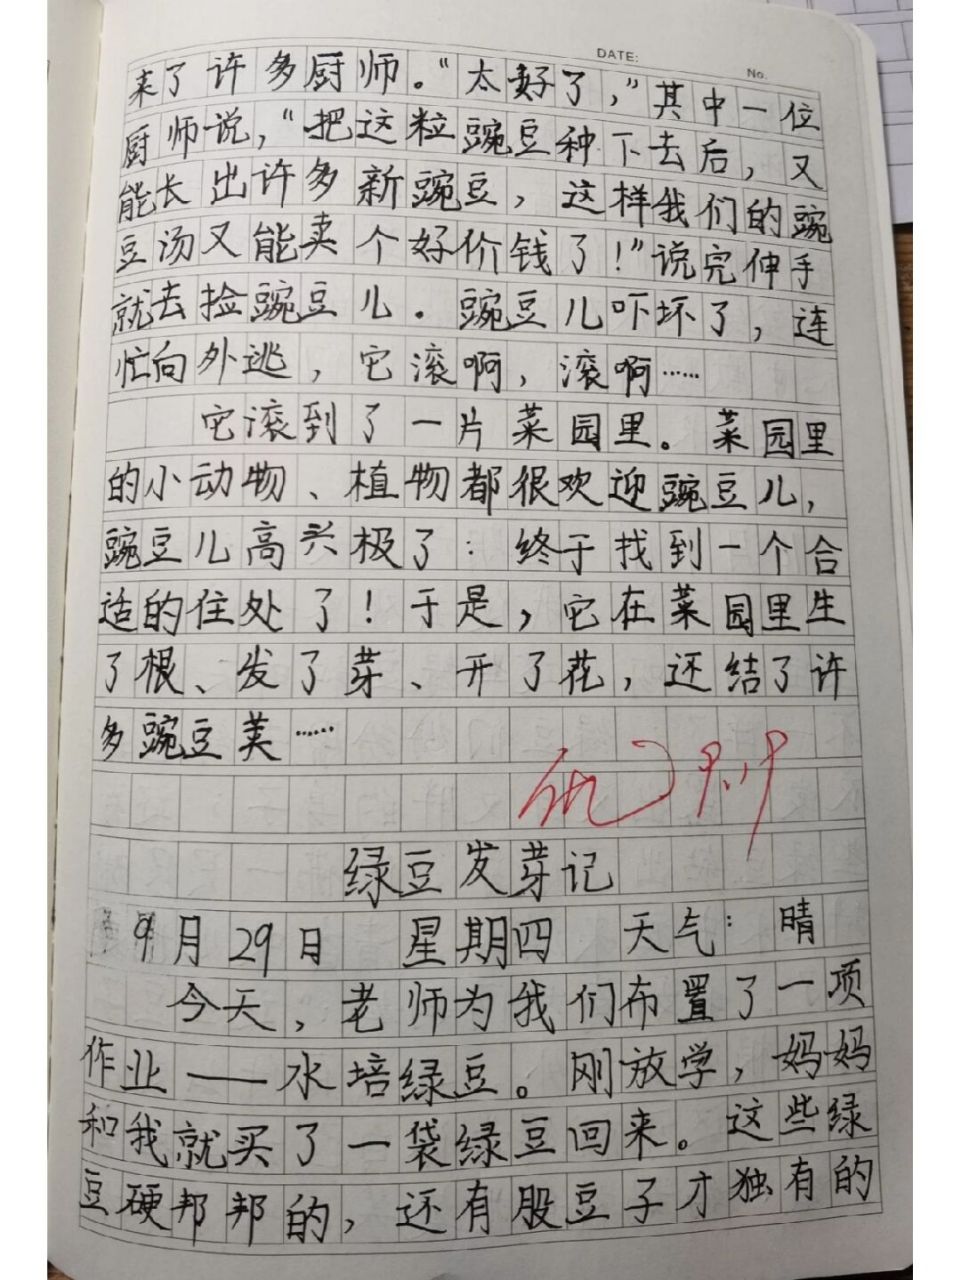 DATE:
No.
来了许多厨师。“太好了，”其中一位
厨师说，“把这粒豌豆种下去后，又
能长出许多新豌豆，这样我们的豌
豆汤又能卖个好价钱了！”说完伸手
就去捡豌豆儿。豌豆儿吓坏了，连
忙向外逃，它滚啊，滚啊……
它滚到了一片菜园里。菜园里
的小动物、植物都很欢迎豌豆儿，
豌豆儿高兴极了：终于找到一个合
适的住处了！于是，它在菜园里生
了根、发了芽、开了花，还结了许
多豌豆荚……
绿豆发芽记
9月29日 星期四 天气：晴
今天，老师为我们布置了一项
作业——水培绿豆。刚放学，妈妈
和我就买了一袋绿豆回来。这些绿
豆硬邦邦的，还有股豆子才独有的